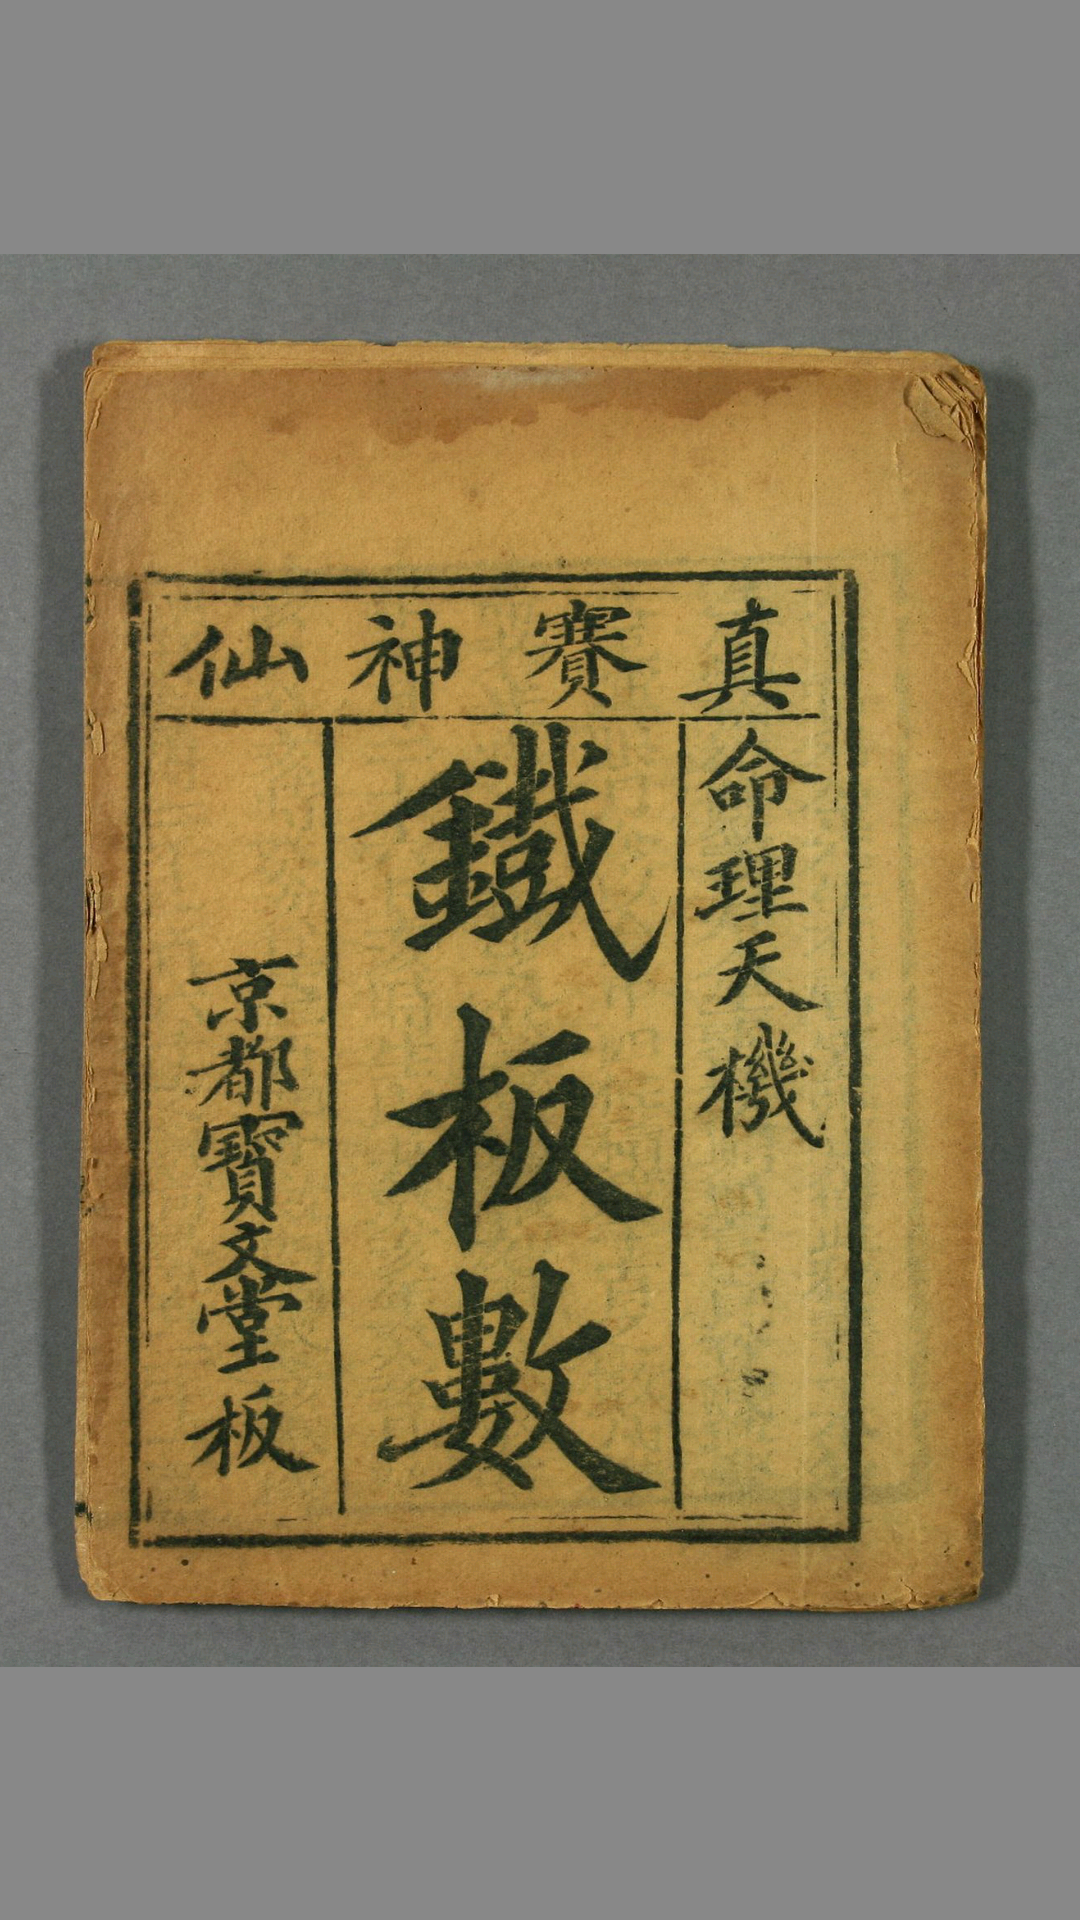 真賽神仙
命理天機
鐵板數
京都寶文堂板